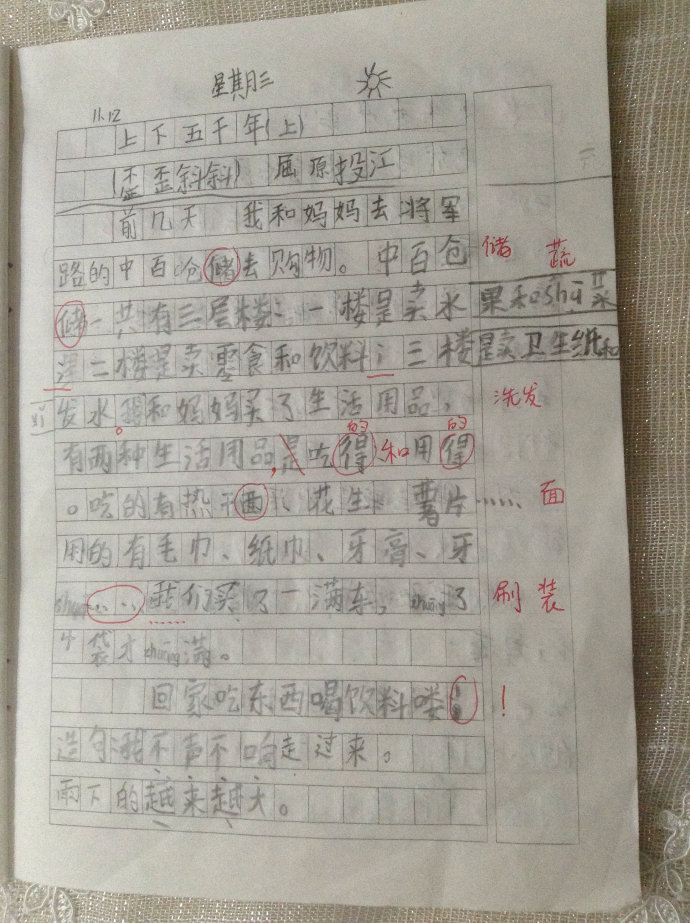 星期三
11.12
上下五千年(上)
(歪歪斜斜) 屈原投江
前几天 我和妈妈去将军
路的中百仓储去购物。中百仓 储 蔬
储一共有三层楼:一楼是卖水果和shū菜
;二楼是卖零食和饮料;三楼是卖卫生纸和
发水。我和妈妈买了生活用品, 洗发
有两种生活用品,是吃得和用得
的 和 的
。吃的有热干面、花生、薯片…… 面
用的有毛巾、纸巾、牙膏、牙
shuā……我们买了一满车,zhuāng了 刷 装
袋才zhuāng满。
回家吃东西喝饮料喽! !
造句:我不声不响走过来。
雨下的越来越大。